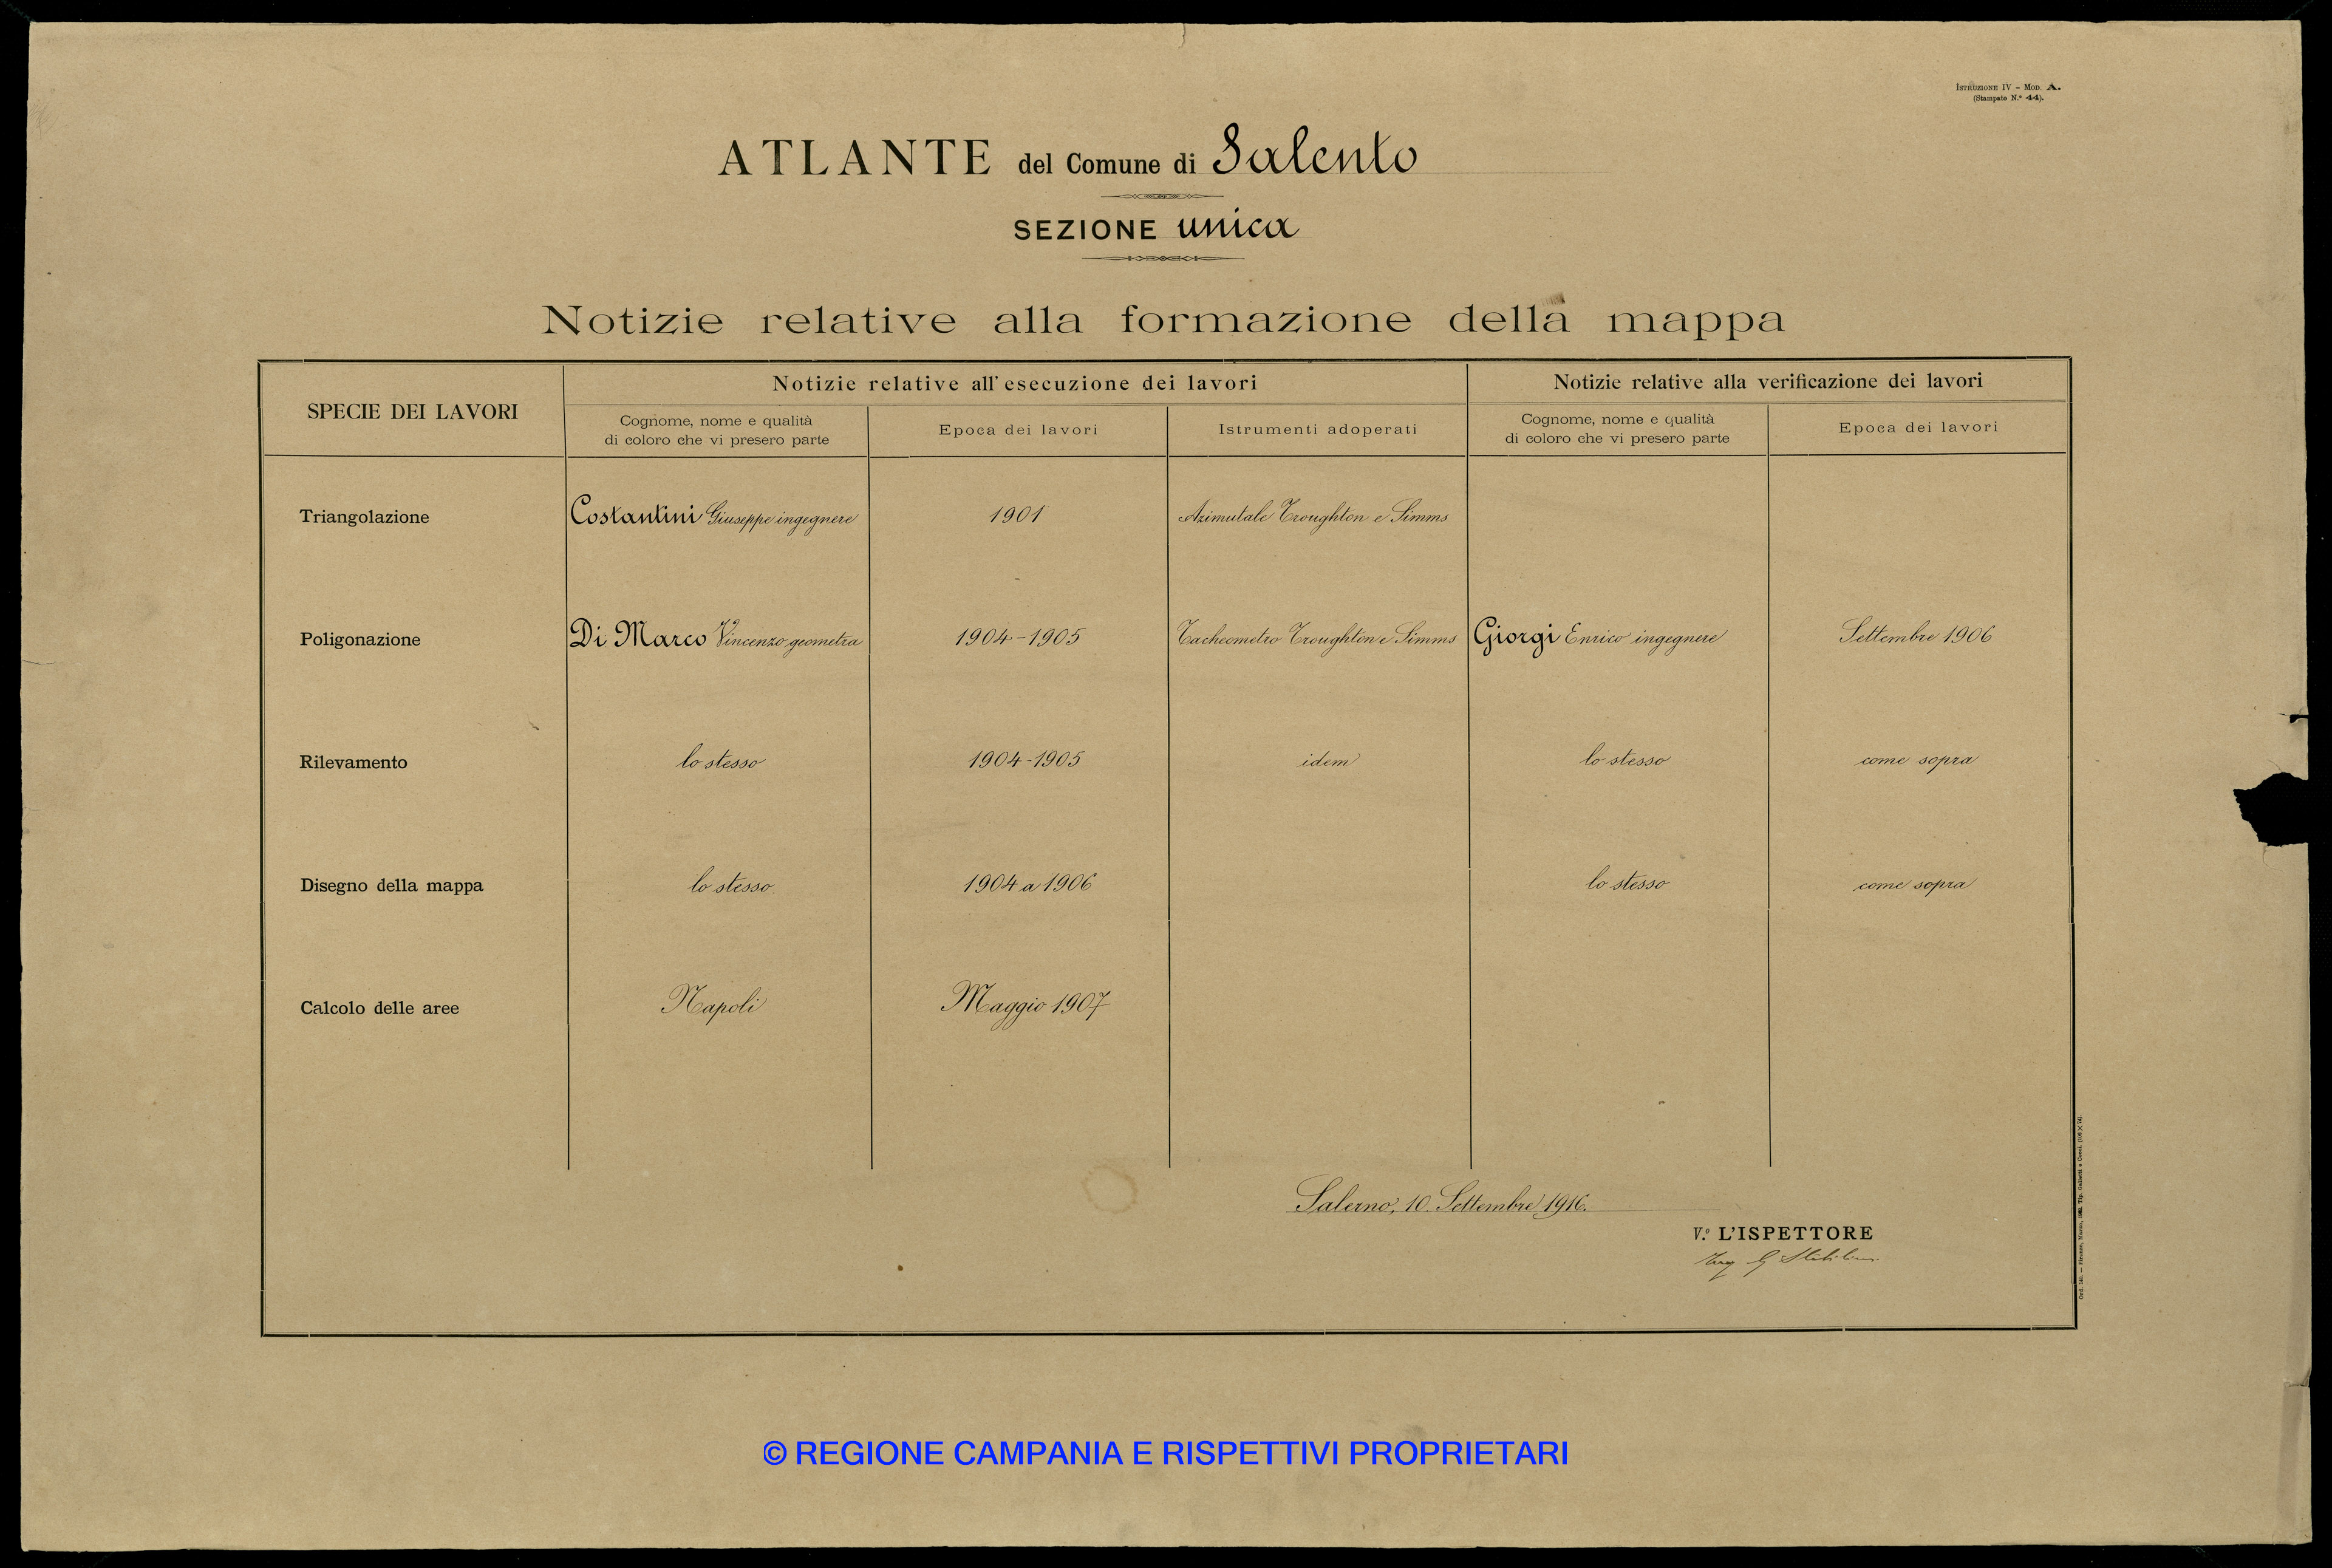 Istruzione IV – Mod. A.
(Stampato N.º 44).
ATLANTE del Comune di Salento
SEZIONE unica
Notizie relative alla formazione della mappa
SPECIE DEI LAVORI
Notizie relative all'esecuzione dei lavori
Notizie relative alla verificazione dei lavori
Cognome, nome e qualità
di coloro che vi presero parte
Epoca dei lavori
Istrumenti adoperati
Cognome, nome e qualità
di coloro che vi presero parte
Epoca dei lavori
Triangolazione Costantini Giuseppe ingegnere 1901 Azimutale Troughton e Simms
Poligonazione Di Marco Vincenzo geometra 1904-1905 Tacheometro Troughton e Simms Giorgi Enrico ingegnere Settembre 1906
Rilevamento lo stesso 1904-1905 idem lo stesso come sopra
Disegno della mappa lo stesso 1904 a 1906 lo stesso come sopra
Calcolo delle aree Napoli Maggio 1907
Salerno, 10 Settembre 1916.
V.º L'ISPETTORE
Ing G
© REGIONE CAMPANIA E RISPETTIVI PROPRIETARI